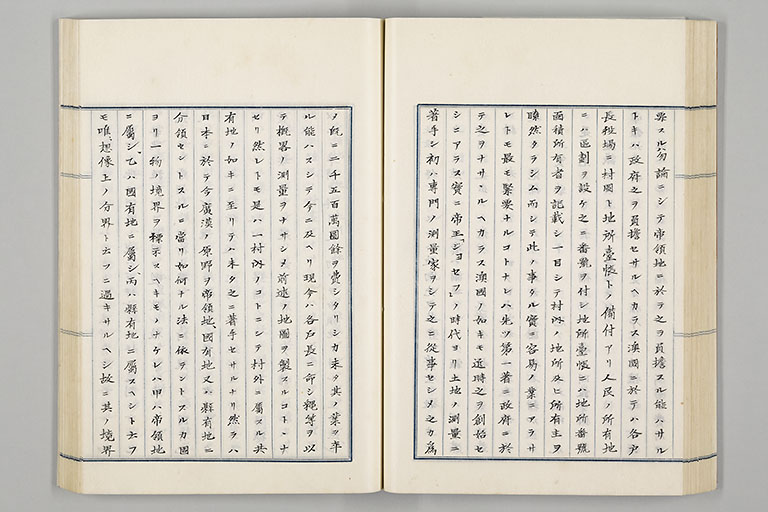 要スルハ勿論ニシテ帝領地ニ於テ之ヲ負擔スル能ハサル
トキハ政府之ヲ負擔セサルヘカラス澳國ニ於テハ各戸
長役場ニ村圖ト地所臺帳トノ備付アリ人民ノ所有地
ニハ區劃ヲ設ケ之ニ番號ヲ付シ地所臺帳ニハ地所番號
面積所有者ヲ記載シ一目シテ村内ノ地所及ヒ所有主ヲ
瞭然タラシム而シテ此ノ事タル實ニ容易ノ業ニアラサ
レトモ最モ緊要ナルコトナレハ先ツ第一着ニ政府ニ於
テ之ヲナサヽルヘカラス澳國ノ如キモ近時之ヲ創始セ
シニアラス實ニ帝王「ジヨセフ」ノ時代ヨリ土地ノ測量ニ
著手シ初ハ專門ノ測量家ヲシテ之ニ從事セシメ之カ爲
ノ既ニ二千五百萬圓餘ヲ費シタリシカ未タ其ノ業ヲ卒
ル能ハスシテ今ニ及ヘリ現今ハ各戸長ニ命シ繩等ヲ以
テ概略ノ測量ヲナサシメ前述ノ地圖ヲ製スルコトヽナ
セリ然レトモ是ハ一村内ノコトニシテ村外ニ屬スル共
有地ノ如キニ至リテハ未タ之ニ著手セサルナリ然ラハ
日本ニ於テ今廣漠ノ原野ヲ帝領地、國有地又ハ縣有地ニ
分領セントスルニ當リ如何ナル法ニ依ラントスルカ固
ヨリ一物ノ境界ヲ標示スヘキモノナケレハ甲ハ帝領地
ニ屬シ、乙ハ國有地ニ屬シ、丙ハ縣有地ニ屬スヘシト云フ
モ唯想像上ノ分界ト云フニ過キサルヘシ故ニ其ノ境界